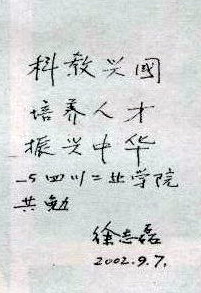 科教兴國
培养人才
振兴中华
与四川工业学院
共勉
徐志磊
2002.9.7.